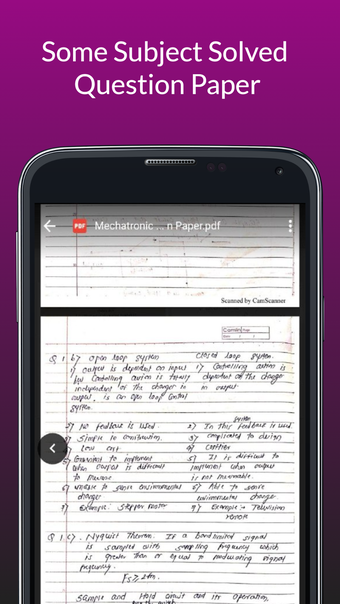 Some Subject Solved
Question Paper
PDF Mechatronic ... n Paper.pdf
Scanned by CamScanner
Q 1. b) open loop system closed loop system.
1) output is dependent on input 1) Controlling action is
but controlling action is totally dependent on the change
independent of the changes in in output
output, is an open loop control
system.
system
2) No feedback is used 2) In this feedback is used
3) Simple in construction 3) complicated to design
4) Low cost 4) costlier
5) convenient to implement 5) It is difficult to
when output is difficult implement when output
to measure is not measurable.
6) unable to sense environmental 6) Able to sense
change environmental change
7) Example: stepper motor 7) Example:- Television
remote
Q 1. c). Nyquist Theorem. If a band limited signal
is sampled with sampling frequency which
is greater than or equal to modulating signal
frequency.
Fs ≥ 2fm.
sample and Hold circuit and its operation,